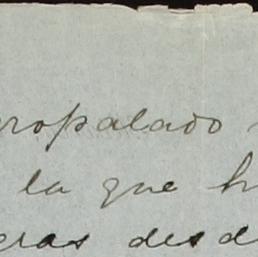 ropalado
la que h
eras desd